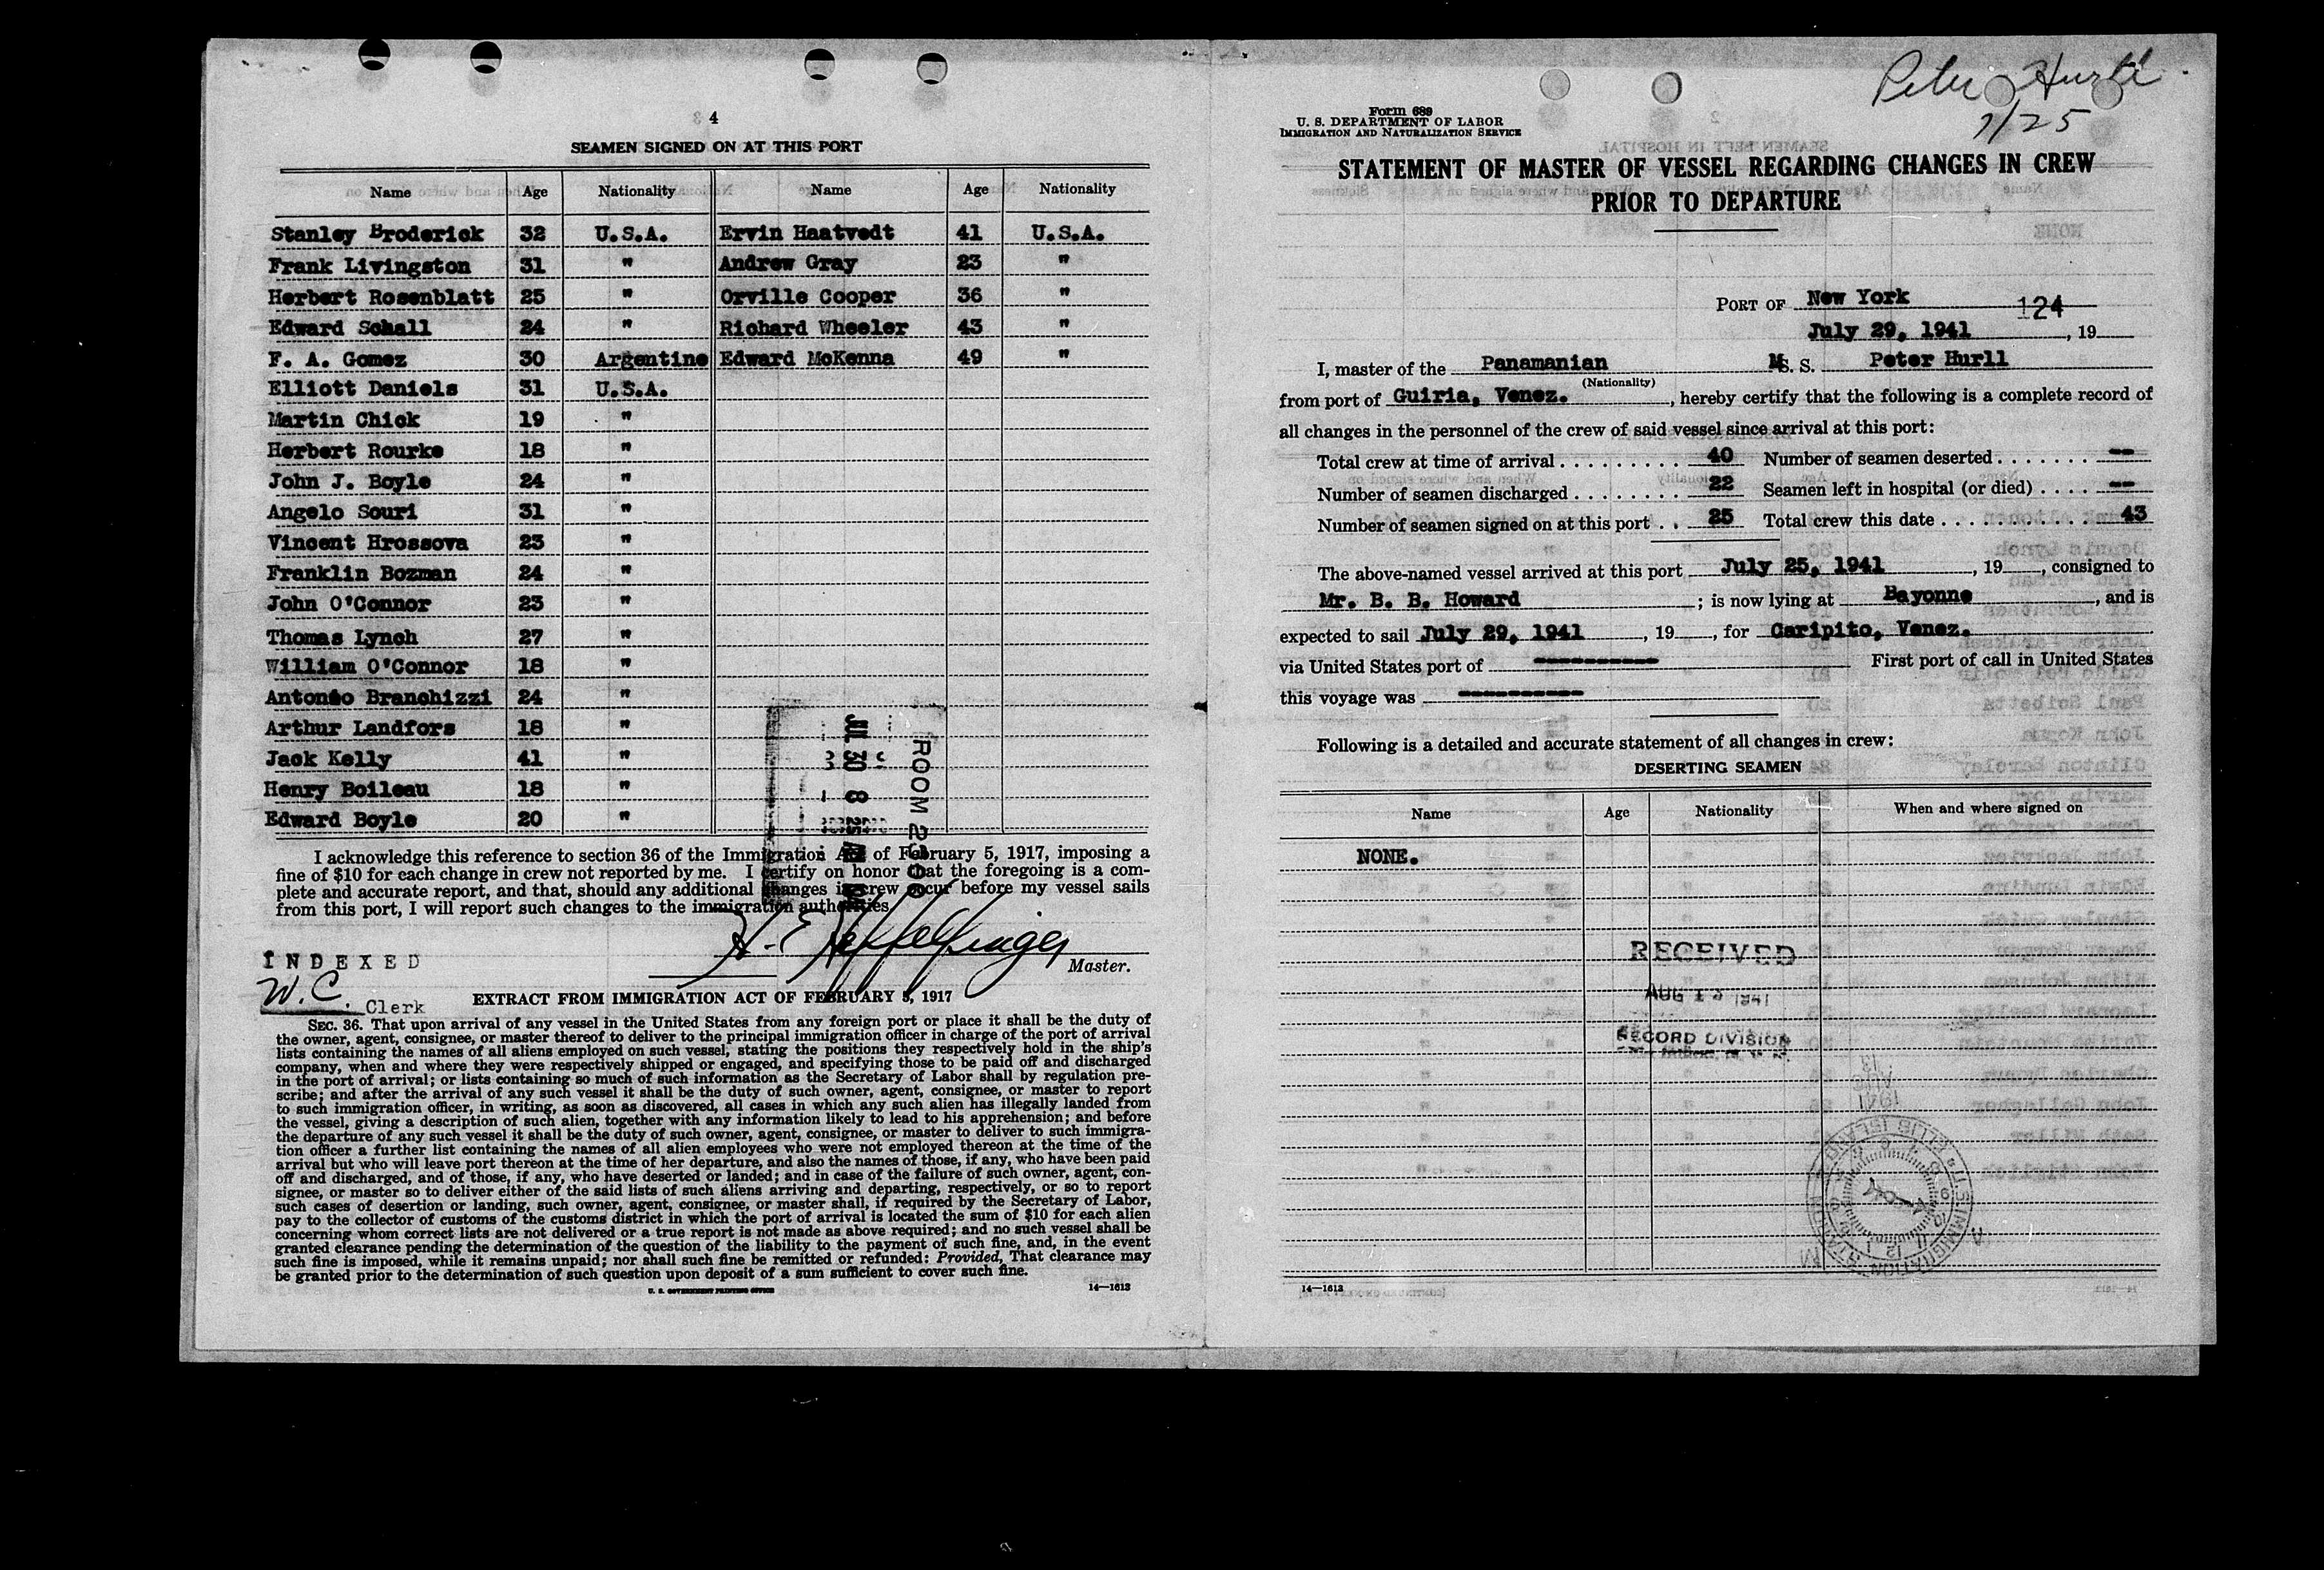 4
SEAMEN SIGNED ON AT THIS PORT
Name Age Nationality Name Age Nationality
Stanley Broderick 32 U.S.A. Ervin Haatvedt 41 U.S.A.
Frank Livingston 31 " Andrew Gray 23 "
Herbert Rosenblatt 25 " Orville Cooper 36 "
Edward Schall 24 " Richard Wheeler 43 "
F. A. Gomez 30 Argentine Edward McKenna 49 "
Elliott Daniels 31 U.S.A.
Martin Chick 19 "
Herbert Rourke 18 "
John J. Boyle 24 "
Angelo Souri 31 "
Vincent Hrossova 23 "
Franklin Bozman 24 "
John O'Connor 23 "
Thomas Lynch 27 "
William O'Connor 18 "
Antonio Branchizzi 24 "
Arthur Landfors 18 "
Jack Kelly 41 "
Henry Boileau 18 "
Edward Boyle 20 "
JUL 30 8
ROOM
I acknowledge this reference to section 36 of the Immigration Act of February 5, 1917, imposing a
fine of $10 for each change in crew not reported by me. I certify on honor that the foregoing is a com-
plete and accurate report, and that, should any additional changes in crew occur before my vessel sails
from this port, I will report such changes to the immigration authorities.
H. E. Heffelfinger
Master.
INDEXED
W. C. Clerk
EXTRACT FROM IMMIGRATION ACT OF FEBRUARY 5, 1917
SEC. 36. That upon arrival of any vessel in the United States from any foreign port or place it shall be the duty of
the owner, agent, consignee, or master thereof to deliver to the principal immigration officer in charge of the port of arrival
lists containing the names of all aliens employed on such vessel, stating the positions they respectively hold in the ship's
company, when and where they were respectively shipped or engaged, and specifying those to be paid off and discharged
in the port of arrival; or lists containing so much of such information as the Secretary of Labor shall by regulation pre-
scribe; and after the arrival of any such vessel it shall be the duty of such owner, agent, consignee, or master to report
to such immigration officer, in writing, as soon as discovered, all cases in which any such alien has illegally landed from
the vessel, giving a description of such alien, together with any information likely to lead to his apprehension; and before
the departure of any such vessel it shall be the duty of such owner, agent, consignee, or master to deliver to such immigra-
tion officer a further list containing the names of all alien employees who were not employed thereon at the time of the
arrival but who will leave port thereon at the time of her departure, and also the names of those, if any, who have been paid
off and discharged, and of those, if any, who have deserted or landed; and in case of the failure of such owner, agent, con-
signee, or master so to deliver either of the said lists of such aliens arriving and departing, respectively, or so to report
such cases of desertion or landing, such owner, agent, consignee, or master shall, if required by the Secretary of Labor,
pay to the collector of customs of the customs district in which the port of arrival is located the sum of $10 for each alien
concerning whom correct lists are not delivered or a true report is not made as above required; and no such vessel shall be
granted clearance pending the determination of the question of the liability to the payment of such fine, and, in the event
such fine is imposed, while it remains unpaid; nor shall such fine be remitted or refunded: Provided, That clearance may
be granted prior to the determination of such question upon deposit of a sum sufficient to cover such fine.
U. S. GOVERNMENT PRINTING OFFICE 14—1613
Peter Hurll
7/25
Form 689
U. S. DEPARTMENT OF LABOR
IMMIGRATION AND NATURALIZATION SERVICE
STATEMENT OF MASTER OF VESSEL REGARDING CHANGES IN CREW
PRIOR TO DEPARTURE
PORT OF New York 124
July 29, 1941, 19
I, master of the Panamanian M S. S. Peter Hurll
(Nationality)
from port of Guiria, Venez., hereby certify that the following is a complete record of
all changes in the personnel of the crew of said vessel since arrival at this port:
Total crew at time of arrival 40 Number of seamen deserted --
Number of seamen discharged 22 Seamen left in hospital (or died) --
Number of seamen signed on at this port 25 Total crew this date 43
The above-named vessel arrived at this port July 25, 1941, 19, consigned to
Mr. B. B. Howard; is now lying at Bayonne, and is
expected to sail July 29, 1941, 19, for Caripito, Venez.
via United States port of ---------- First port of call in United States
this voyage was ----------
Following is a detailed and accurate statement of all changes in crew:
DESERTING SEAMEN
Name Age Nationality When and where signed on
NONE.
RECEIVED
AUG 1941
RECORD DIVISION
14—1613